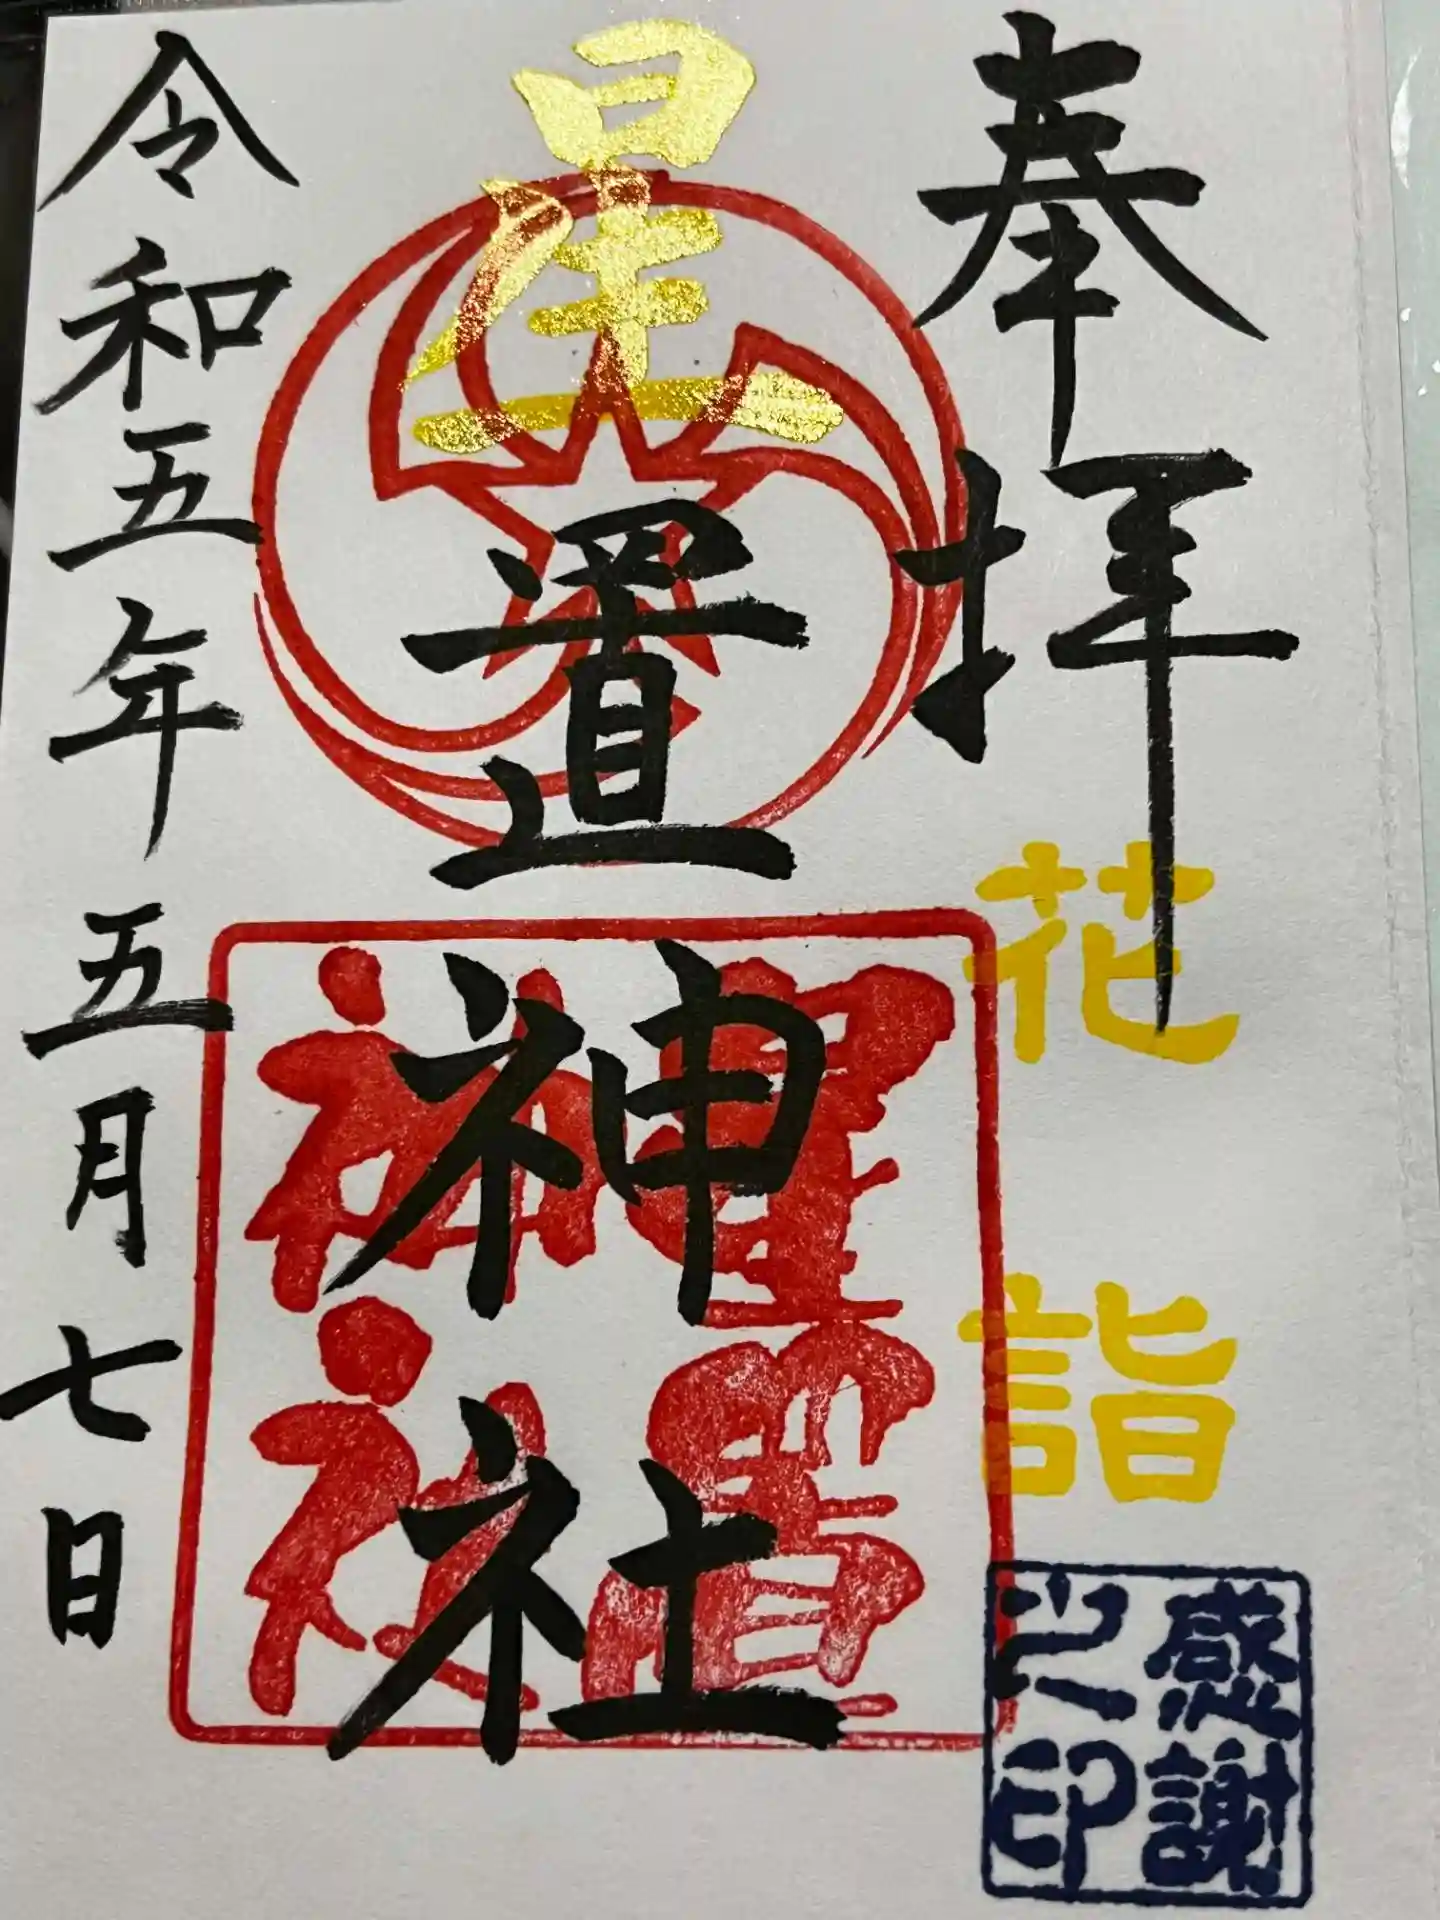 奉拝
花詣
感謝
之印
星置神社
星置
神社
令和五年五月七日